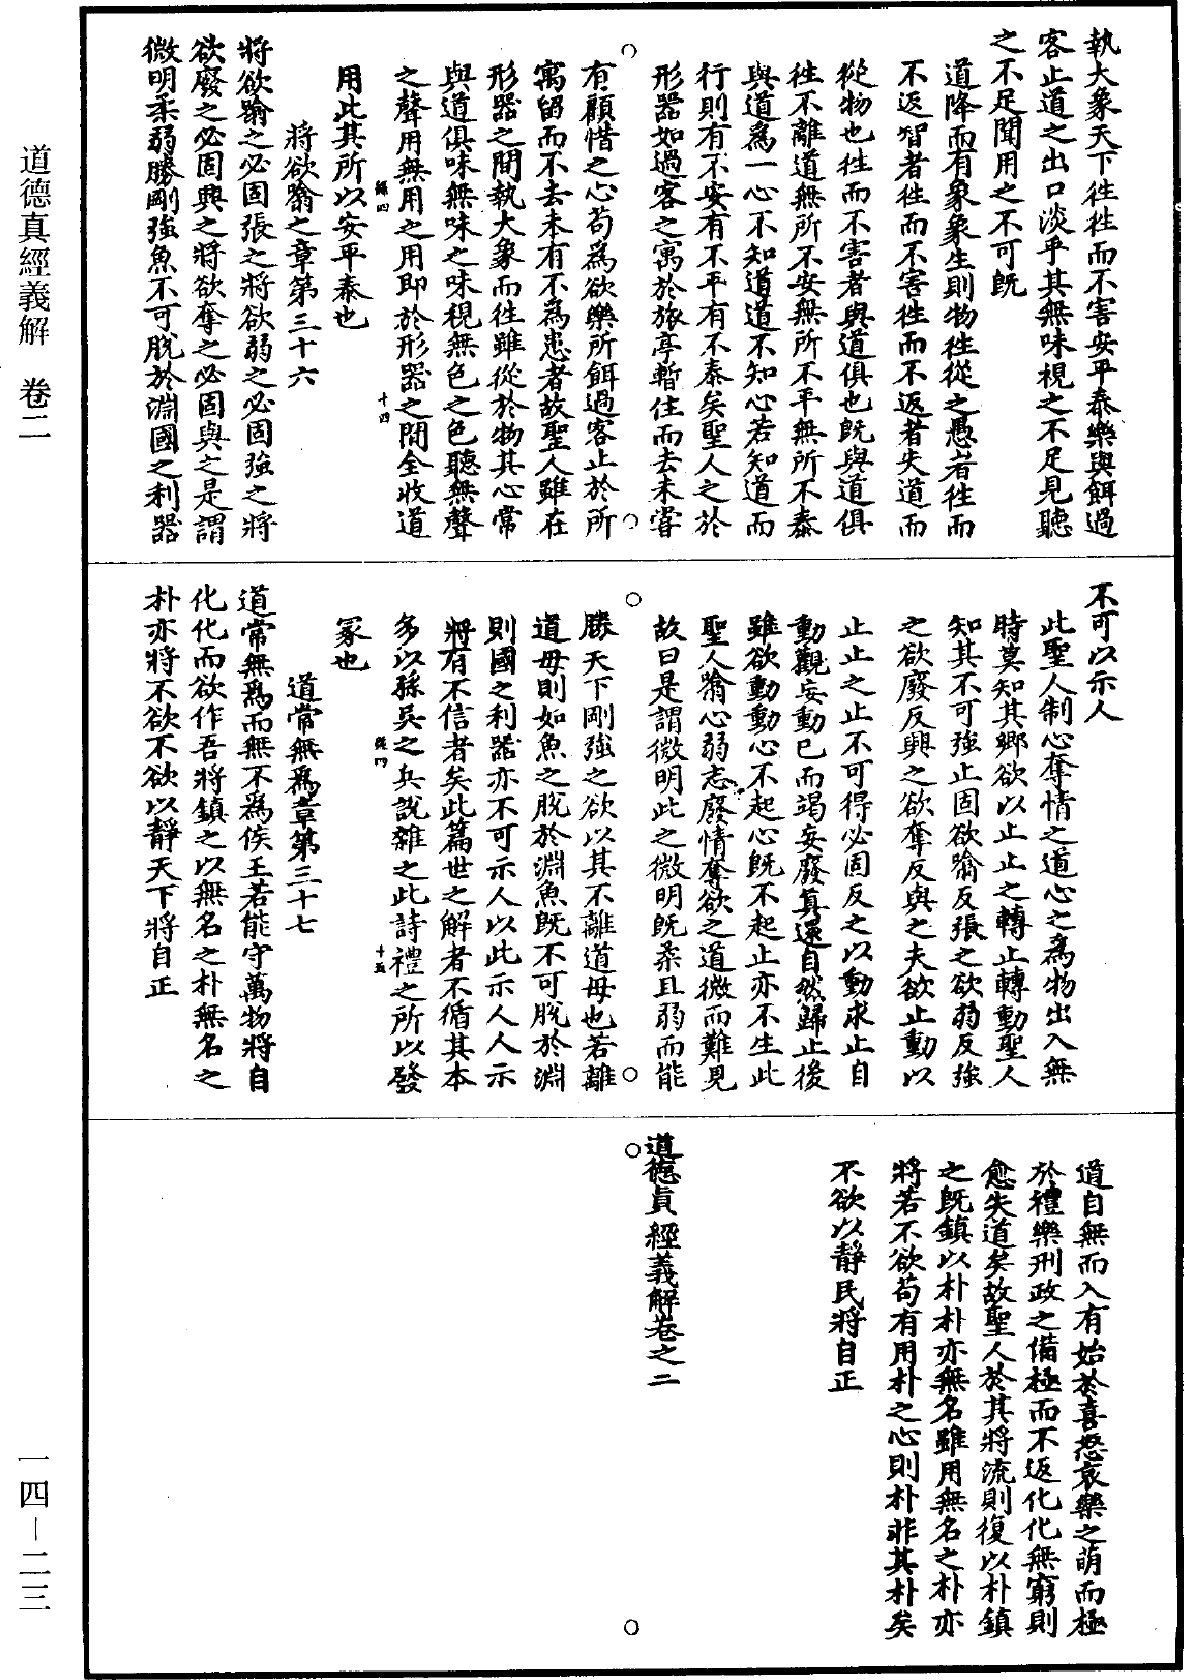 執大象天下徃徃而不害安平泰樂與餌過
客止道之出口淡乎其無味視之不足見聽
之不足聞用之不可旣
道降而有象象生則物徃從之愚者徃而
不返智者徃而不害徃而不返者失道而
從物也徃而不害者與道俱也旣與道俱
徃不離道無所不安無所不平無所不泰
與道爲一心不知道道不知心若知道而
行則有不安有不平有不泰矣聖人之於
形器如過客之寓於旅亭暫住而去未嘗
有顧惜之心苟爲欲樂所餌過客止於所
寓留而不去未有不為患者故聖人雖在
形器之間執大象而徃雖從於物其心常
與道俱味無味之味視無色之色聽無聲
之聲用無用之用即於形器之間全收道
十四
用此其所以安平泰也
將欲翕之章第三十六
將欲翕之必固張之將欲弱之必固強之將
欲廢之必固興之將欲奪之必固與之是謂
微明柔弱勝剛強魚不可脫於淵國之利器
不可以示人
此聖人制心奪情之道心之為物出入無
時莫知其鄉欲以止止之轉止轉動聖人
知其不可強止固欲翕反張之欲弱反強
之欲廢反興之欲奪反與之夫欲止動以
止止之止不可得必固反之以動求止自
動觀妄動已而竭妄廢真還自然歸止後
雖欲動動心不起心旣不起止亦不生此
聖人翕心弱志廢情奪欲之道微而難見
故曰是謂微明此之微明旣柔且弱而能
勝天下剛強之欲以其不離道母也若離
道母則如魚之脫於淵魚旣不可脫於淵
則國之利器亦不可示人以此示人人示
將有不信者矣此篇世之解者不循其本
多以孫吳之兵說雜之此詩禮之所以發
十五
冢也
道常無爲章第三十七
道常無爲而無不爲侯王若能守萬物將自
化化而欲作吾將鎮之以無名之朴無名之
朴亦將不欲不欲以靜天下將自正
道自無而入有始於喜怒哀樂之萌而極
於禮樂刑政之備極而不返化化無窮則
愈失道矣故聖人於其將流則復以朴鎮
之旣鎮以朴朴亦無名雖用無名之朴亦
將若不欲苟有用朴之心則朴非其朴矣
不欲以靜民將自正
道德真經義解卷之二
道德真經義解 卷二
一四－二三